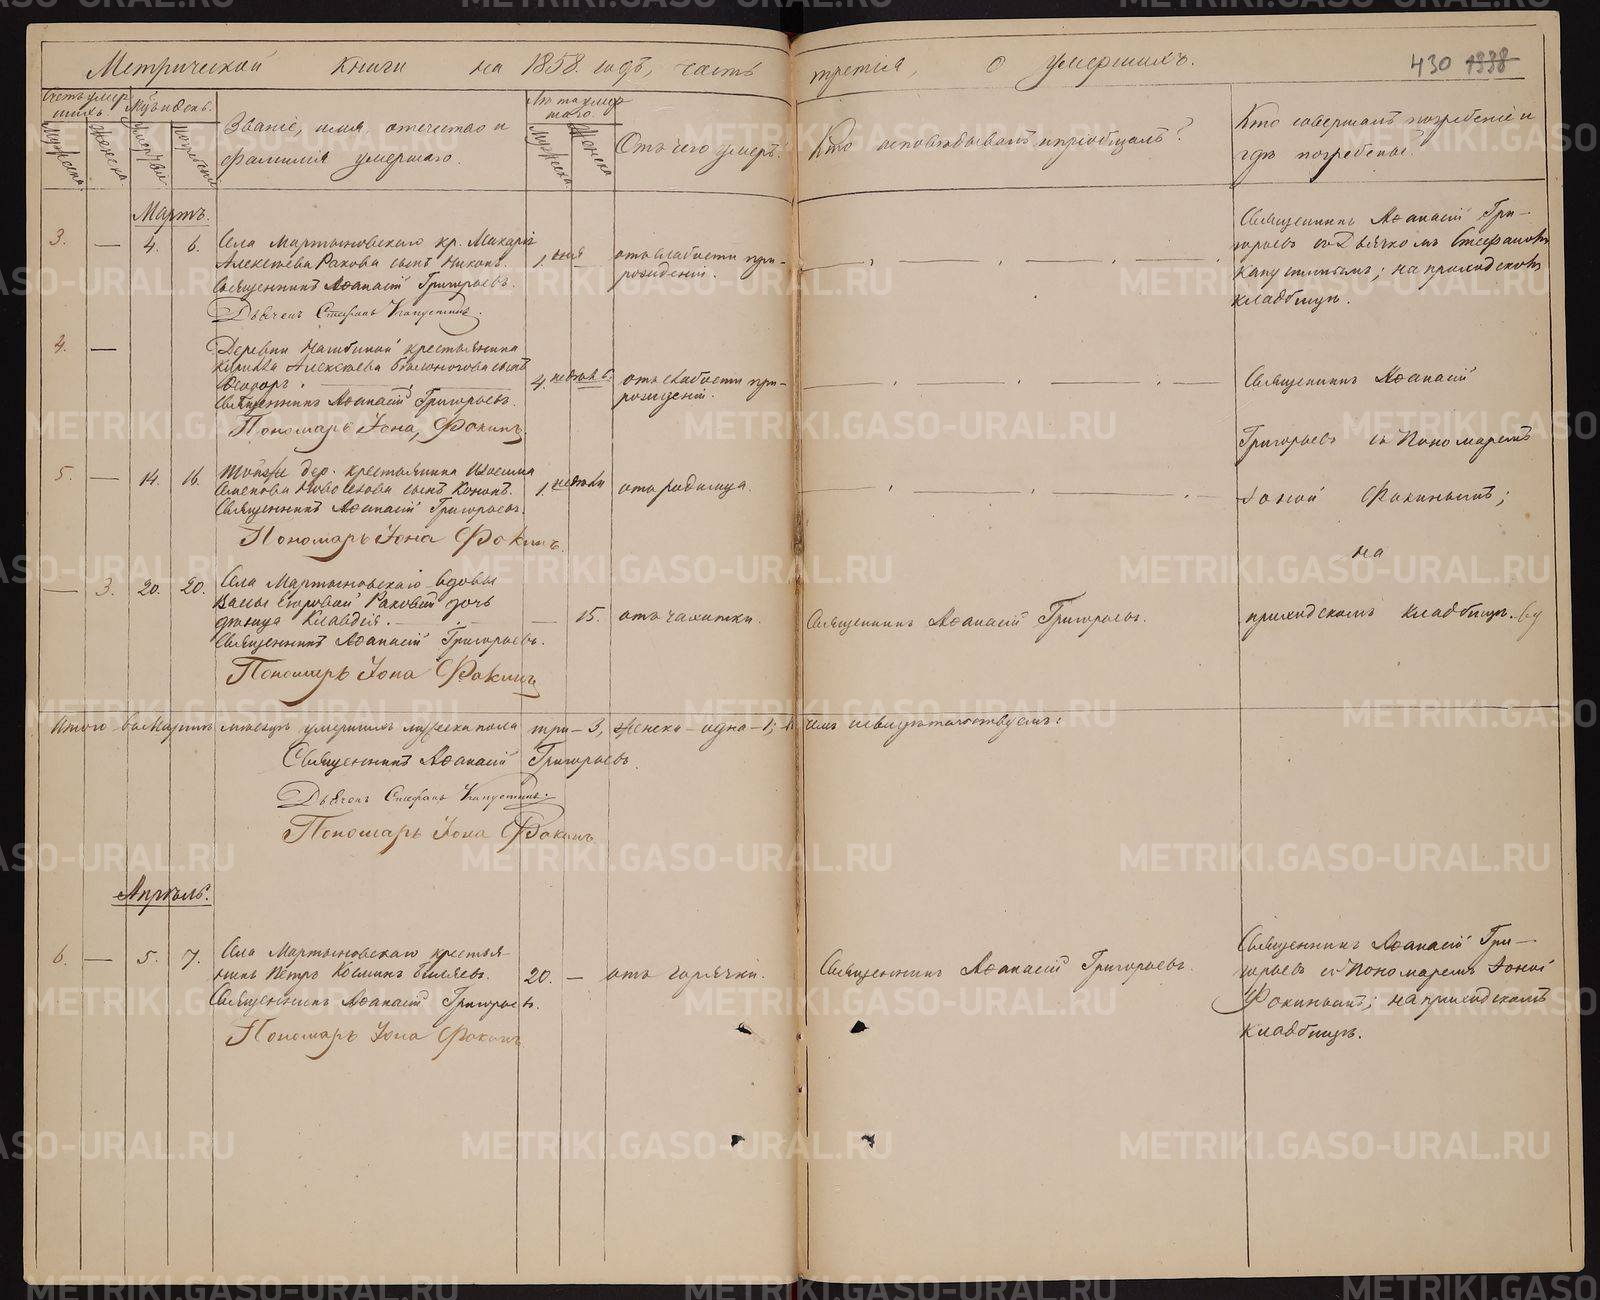 Метрической книги на 1858. годъ, часть третія, о умершихъ.
430 1338
Счетъ умер
шихъ.
Мужеска.
Женска.
Мѣс. и день.
Смерти
погребенія
Званіе, имя, отечество и
фамилія умершаго.
Лѣта умер
шаго.
Мужеска
Женска
Отъ чего умеръ.
Кто исповѣдывалъ и пріобщалъ?
Кто совершалъ погребеніе и
гдѣ погребены?
Мартъ.
3. — 4. 6.
Села Мартыновскаго кр. Макарія
Алексѣева Ракова сынъ Никонъ.
Священникъ Аѳанасій Григорьевъ.
Дьячекъ Стефанъ Капустинъ.
1. дня
отъ слабости при-
рожденія.
Священникъ Аѳанасій Гри-
горьевъ съ Дьячкомъ Стефаномъ
Капустинымъ; на приходскомъ
кладбищѣ.
4. —
Деревни крестьянина
Алексѣева сынъ
Ѳеодоръ.
Священникъ Аѳанасій Григорьевъ.
Пономарь Іона Фокинъ
4.
отъ слабости при-
рожденій.
Священникъ Аѳанасій
Григорьевъ съ Пономаремъ
Іоной Фокинымъ;
на
приходскомъ кладбищѣ.
5. — 14. 16.
Той же дер. крестьянина
Семенова сынъ Кононъ.
Священникъ Аѳанасій Григорьевъ.
Пономарь Іона Фокинъ.
1. недѣли
отъ родимца.
— 3. 20. 20.
Села Мартыновскаго вдовы
Егоровой Раковой дочь
дѣвица Клавдія.
Священникъ Аѳанасій Григорьевъ.
Пономарь Іона Фокинъ
— 15.
отъ чахотки.
Священникъ Аѳанасій Григорьевъ.
Итого въ Мартѣ мѣсяцѣ умершихъ мужеска пола три — 3, женска — одна — 1; въ чемъ и свидѣтельствуемъ:
Священникъ Аѳанасій Григорьевъ.
Дьячекъ Стефанъ Капустинъ.
Пономарь Іона Фокинъ
Апрѣль.
6. — 5. 7.
Села Мартыновскаго крестья-
нинъ Петръ Козминъ Бѣляевъ.
Священникъ Аѳанасій Григорьевъ.
Пономарь Іона Фокинъ
20. —
отъ горячки.
Священникъ Аѳанасій Григорьевъ.
Священникъ Аѳанасій Гри-
горьевъ съ Пономаремъ Іоной
Фокинымъ; на приходскомъ
кладбищѣ.
METRIKI.GASO-URAL.RU